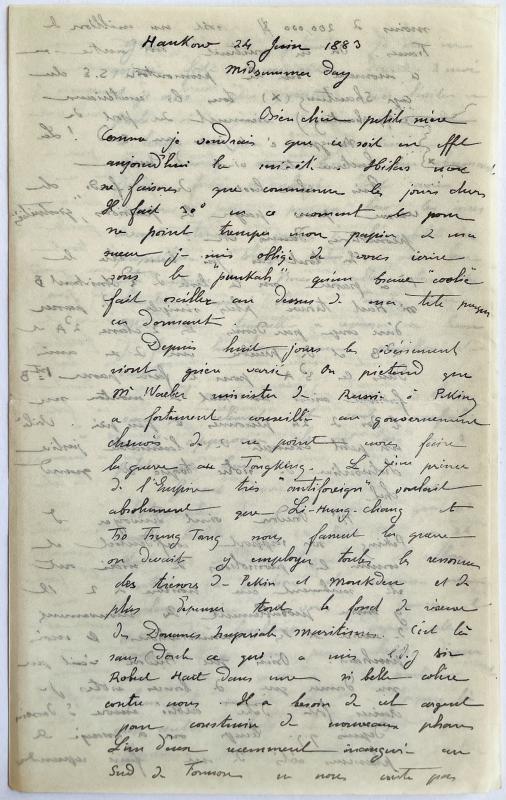 Hankow 24 Juin 1883
Midsummer day
Bien chère petite mère
Comme je voudrais que ce soit en effet
aujourd'hui la mi-été. Hélas nous
ne faisons que commencer les jours chers
Il fait 30° en ce moment et pour
ne point tremper mon papier de ma
sueur je suis obligé de vous écrire
sous le "punkah" qu'un brave "coolie"
fait osciller au dessus de ma tête presque
en dormant.
Depuis huit jours les événements
n'ont guère varié. On prétend que
Mr Waeber ministre de Russie à Peking
a fortement conseillé au gouvernement
chinois de ne point nous faire
la guerre au Tongking. Le 7ième prince
de l'Empire très "antiforeign" voulait
absolument que Li-Hung-chang et
Tso Tsung Tang nous fassent la guerre
on devait y employer toutes les ressources
des trésors de Pékin et Moukden et de
plus dépenser tout le fond de réserve
des Douanes Impériales Maritimes. C'est là
sans doute ce qui a mis Sir
Robert Hart dans une si belle colère
contre nous. Il a besoin de cet argent
pour construire de nouveaux phares
L'un d'eux récemment inauguré au
Sud de Formose ne nous coûte pas